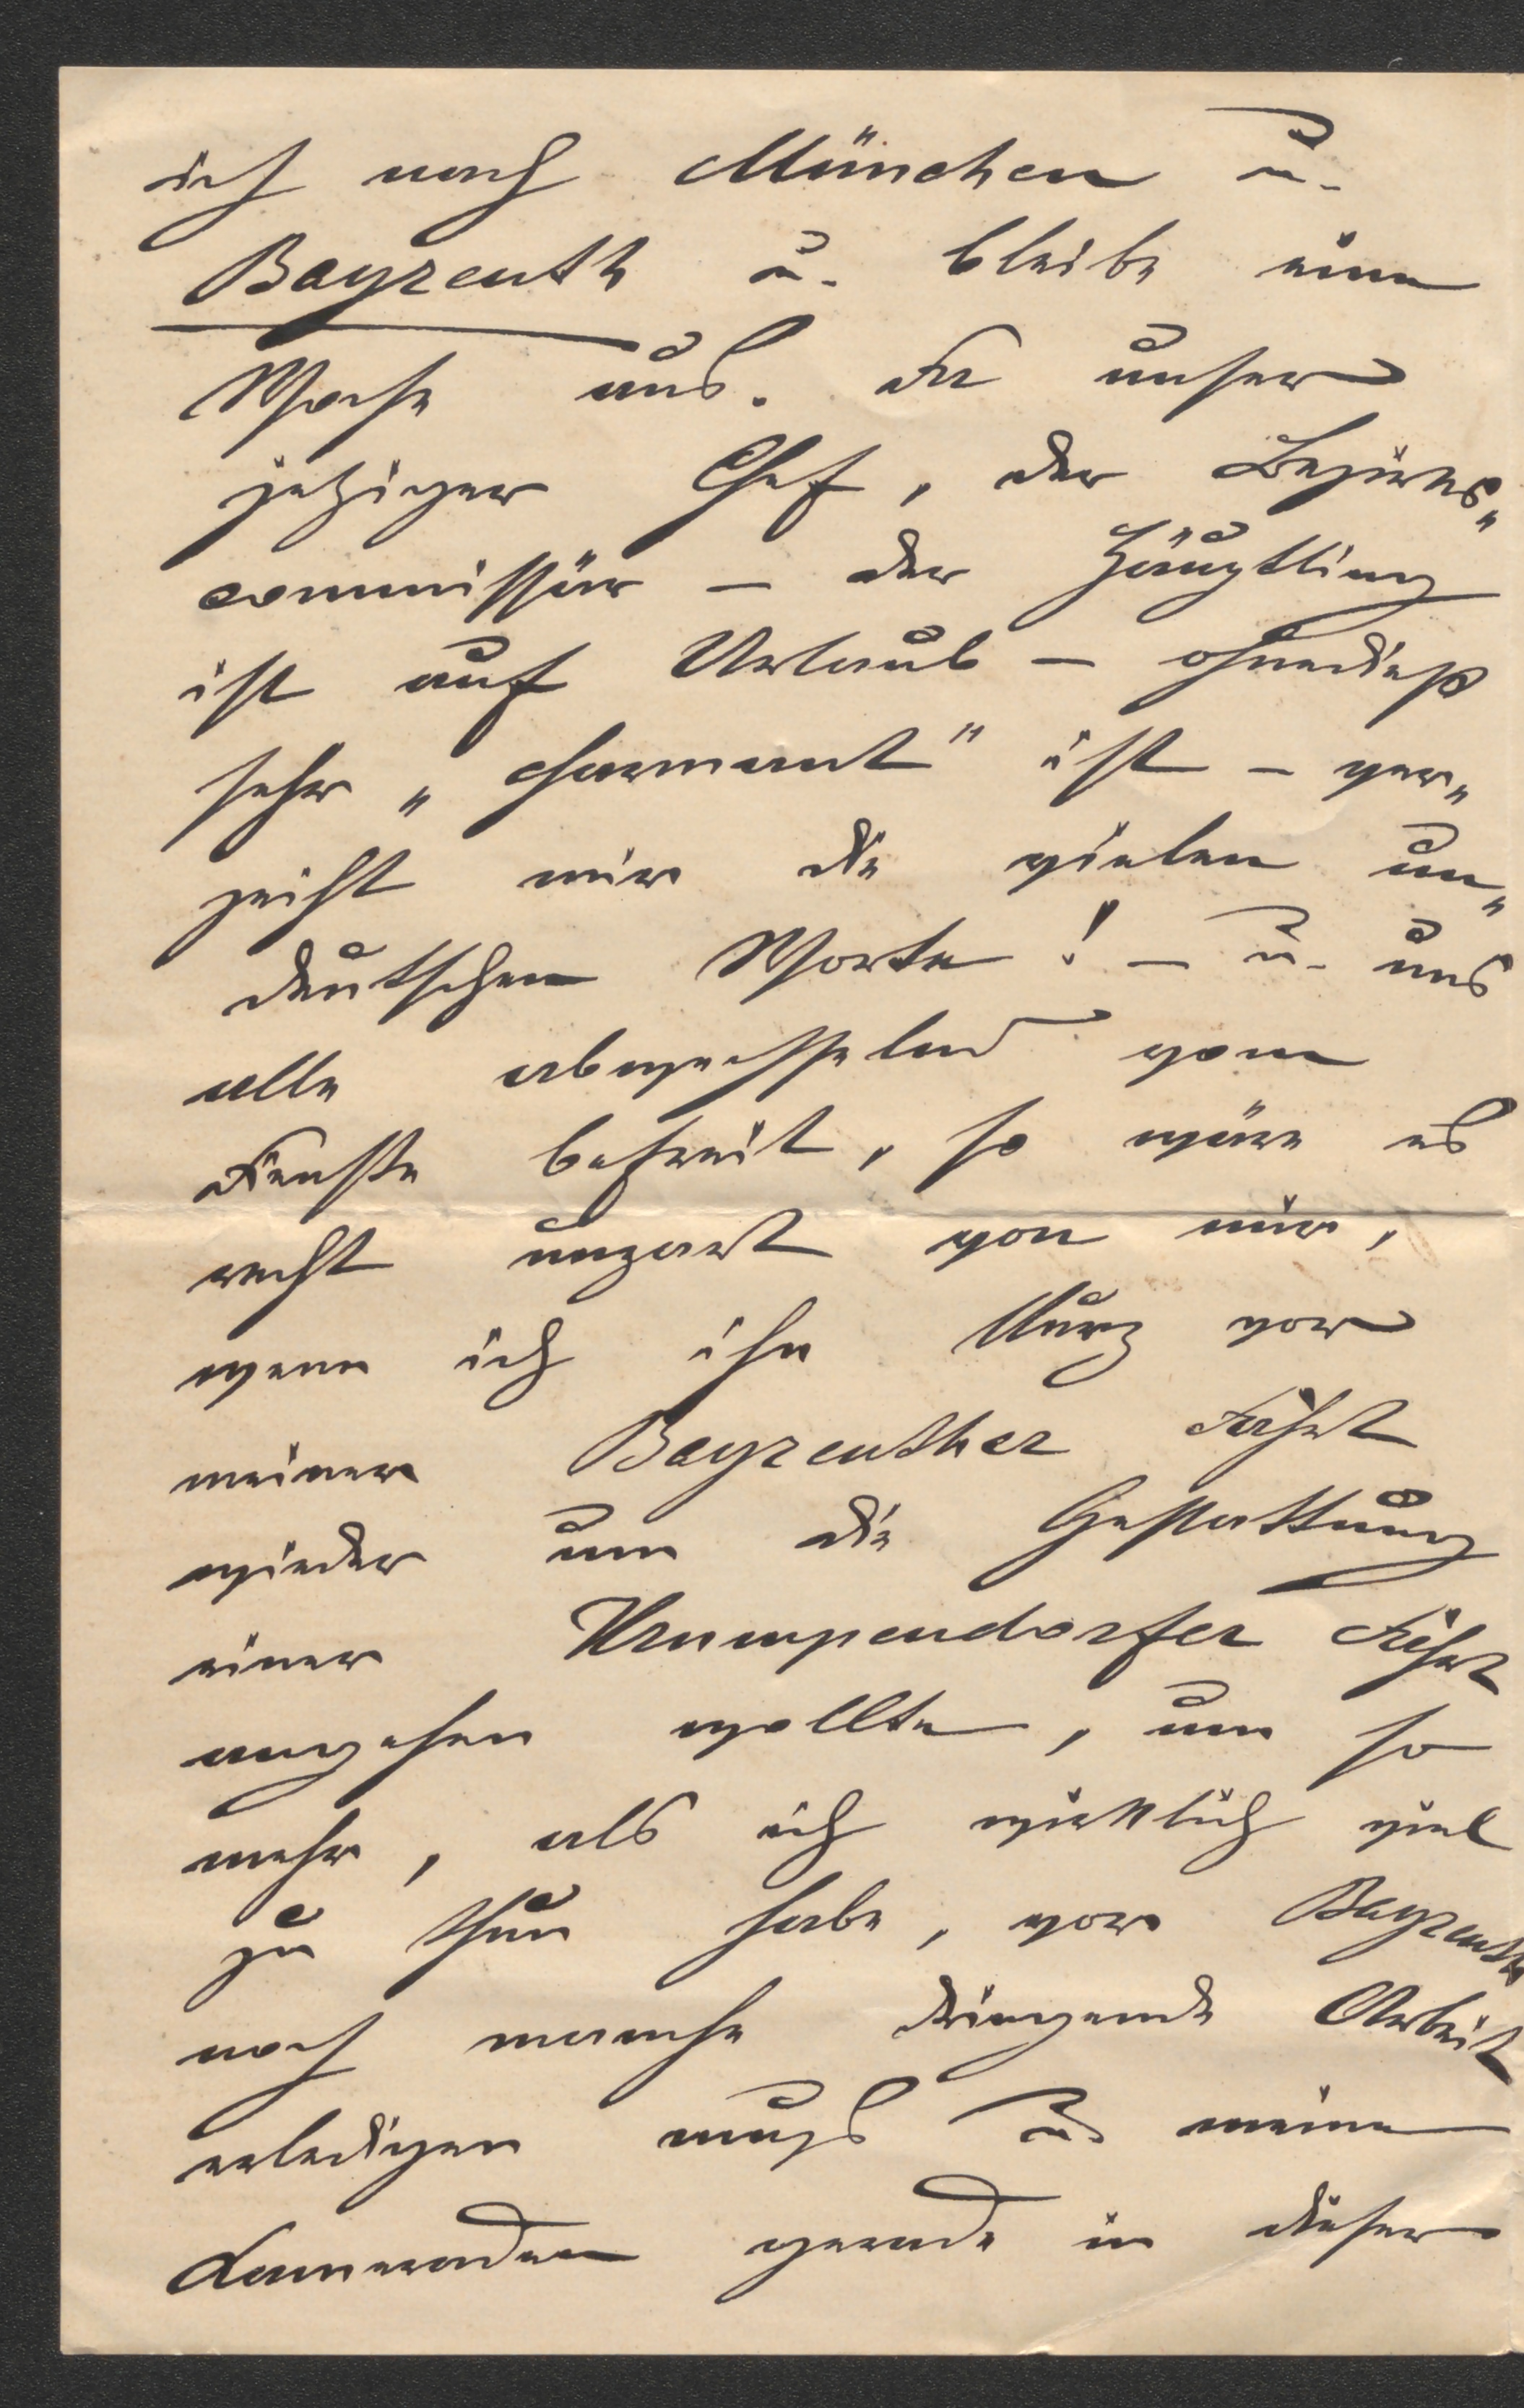 ich nach München u.
Bayreuth u. bleibe eine
Woche aus. Da unser
jetziger Chef, der Bezirks„
commissär – der Häuptling
ist auf Urlaub – ohnedieß
sehr „charmant" ist – ver„
zeiht mir die vielen un„
deutschen Worte! – u. uns
alle abwechselnd vom
Dienste befreit, so wäre es
recht unzart von mir,
wenn ich ihn kurz vor
meiner Bayreuther Fahrt
wieder um die Gestattung
einer Krumpendorfer Fahrt
angehen wollte, um so
mehr, als ich wirklich viel
zu thun habe, vor Bayreuth
noch manche dringende Arbeit
erledigen muß u. meine
Kameraden gerade in dieser